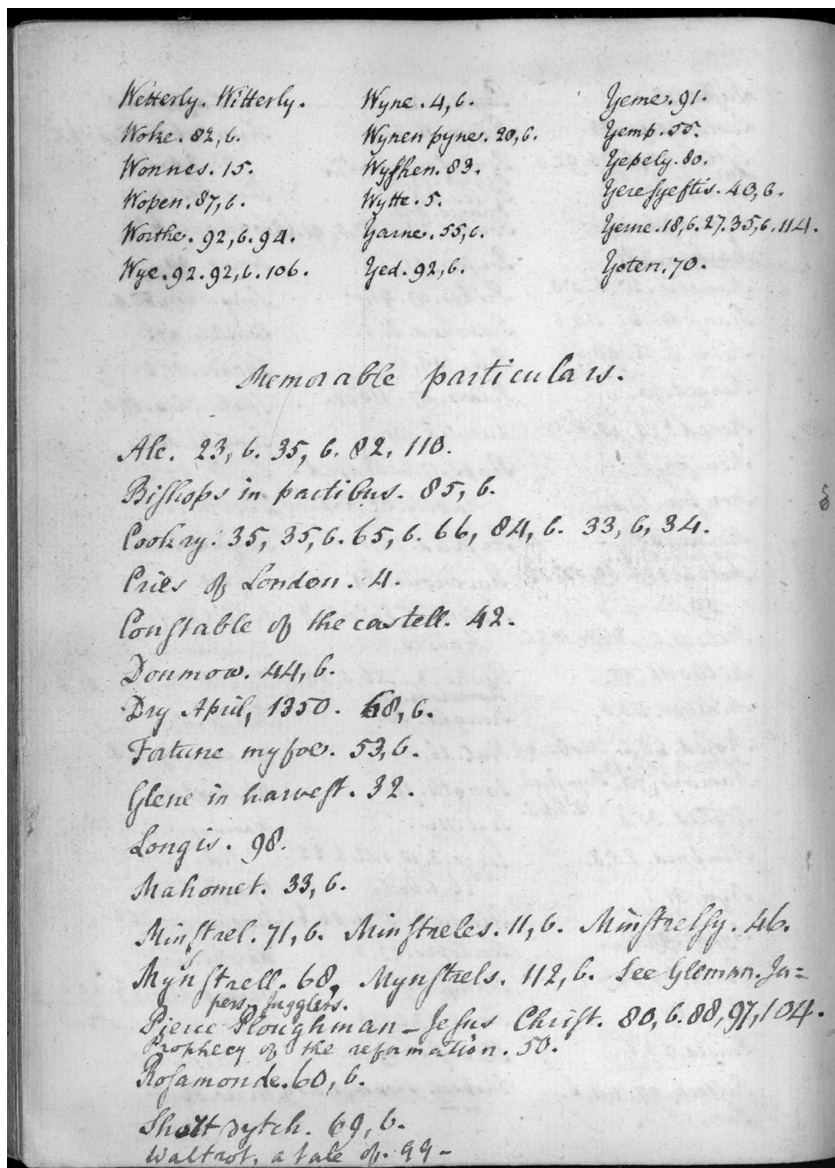 Wetterly. Witterly.
Woke. 82, b.
Wonnes. 15.
Wopen. 87, b.
Worthe. 92, b. 94.
Wye. 92. 92, b. 106.
Wyne. 4, b.
Wynen pyne. 20, b.
Wyſhen. 83.
Wytte. 5.
Yarne. 55, b.
Yed. 92, b.
Yeme. 91.
Yemp. 55.
Yepely. 80.
Yereſyeftis. 40, b.
Yerne. 18, b. 27. 35, b. 114.
Yoten. 70.
Memorable particulars.
Ale. 23, b. 35, b. 82, 110.
Biſhops in partibus. 85, b.
Cookry. 35, 35, b. 65, b. 66, 84, b. 33, b, 34.
Cries of London. 4.
Conſtable of the castell. 42.
Donmow. 44, b.
Dry April, 1350. 68, b.
Fortune my foe. 53, b.
Glene in harveſt. 32.
Longis. 98.
Mahomet. 33, b.
Minſtrel. 71, b. Minſtreles. 11, b. Minſtrelſy. 46.
Mynſtrell. 68, Mynſtrels. 112, b. See Gleman. Ja=
pers, Jugglers.
Pierce Ploughman – Jeſus Chriſt. 80, b. 88, 97, 104.
Prophecy of the reformation. 50.
Roſamonde. 60, b.
Shortdytch. 69, b.
Waltrot, a tale of. 99 –